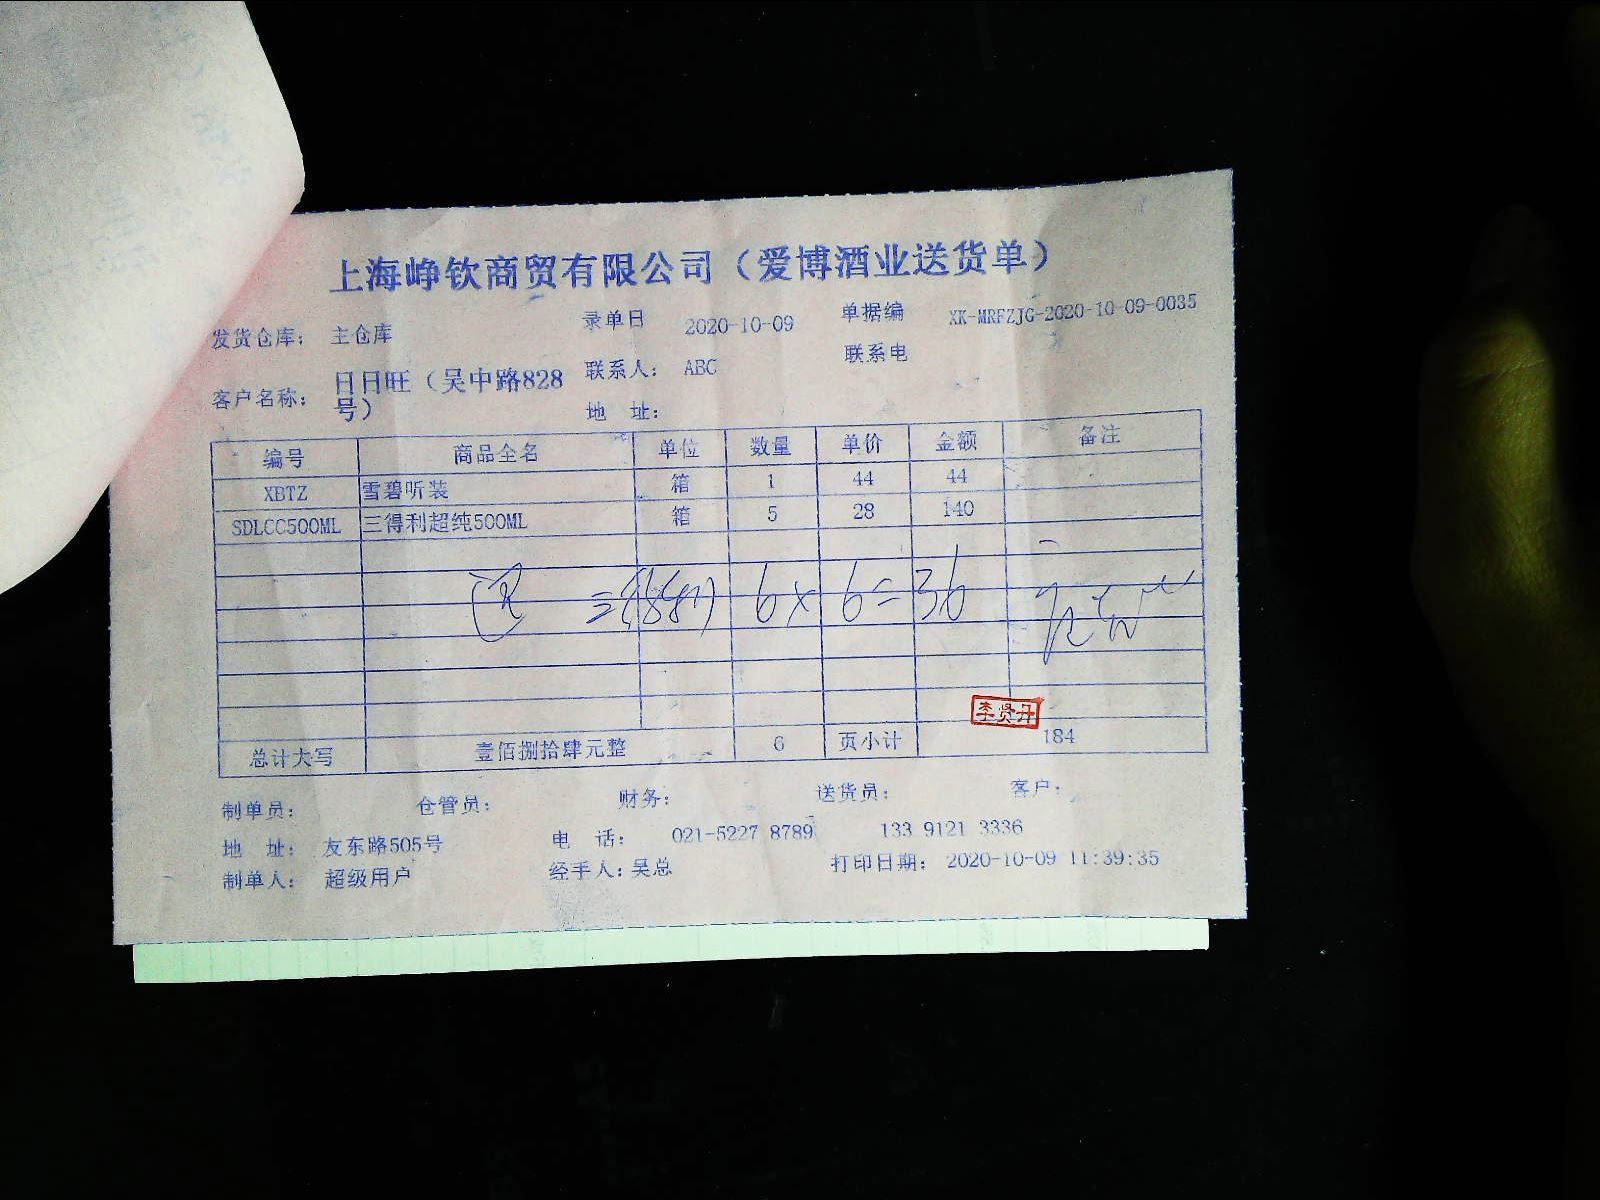 上海峥钦商贸有限公司（爱博酒业送货单）
发货仓库： 主仓库 录单日 2020-10-09 单据编 XK-MRFZJG-2020-10-09-0035
客户名称： 日日旺（吴中路828号） 联系人： ABC 联系电
地 址：
编号 商品全名 单位 数量 单价 金额 备注
XBTZ 雪碧听装 箱 1 44 44
SDLCC500ML 三得利超纯500ML 箱 5 28 140
6×6=36
李贤丹
总计大写 壹佰捌拾肆元整 6 页小计 184
制单员： 仓管员： 财务： 送货员： 客户：
地 址： 友东路505号 电 话： 021-5227 8789 133 9121 3336
制单人： 超级用户 经手人：吴总 打印日期： 2020-10-09 11:39:35